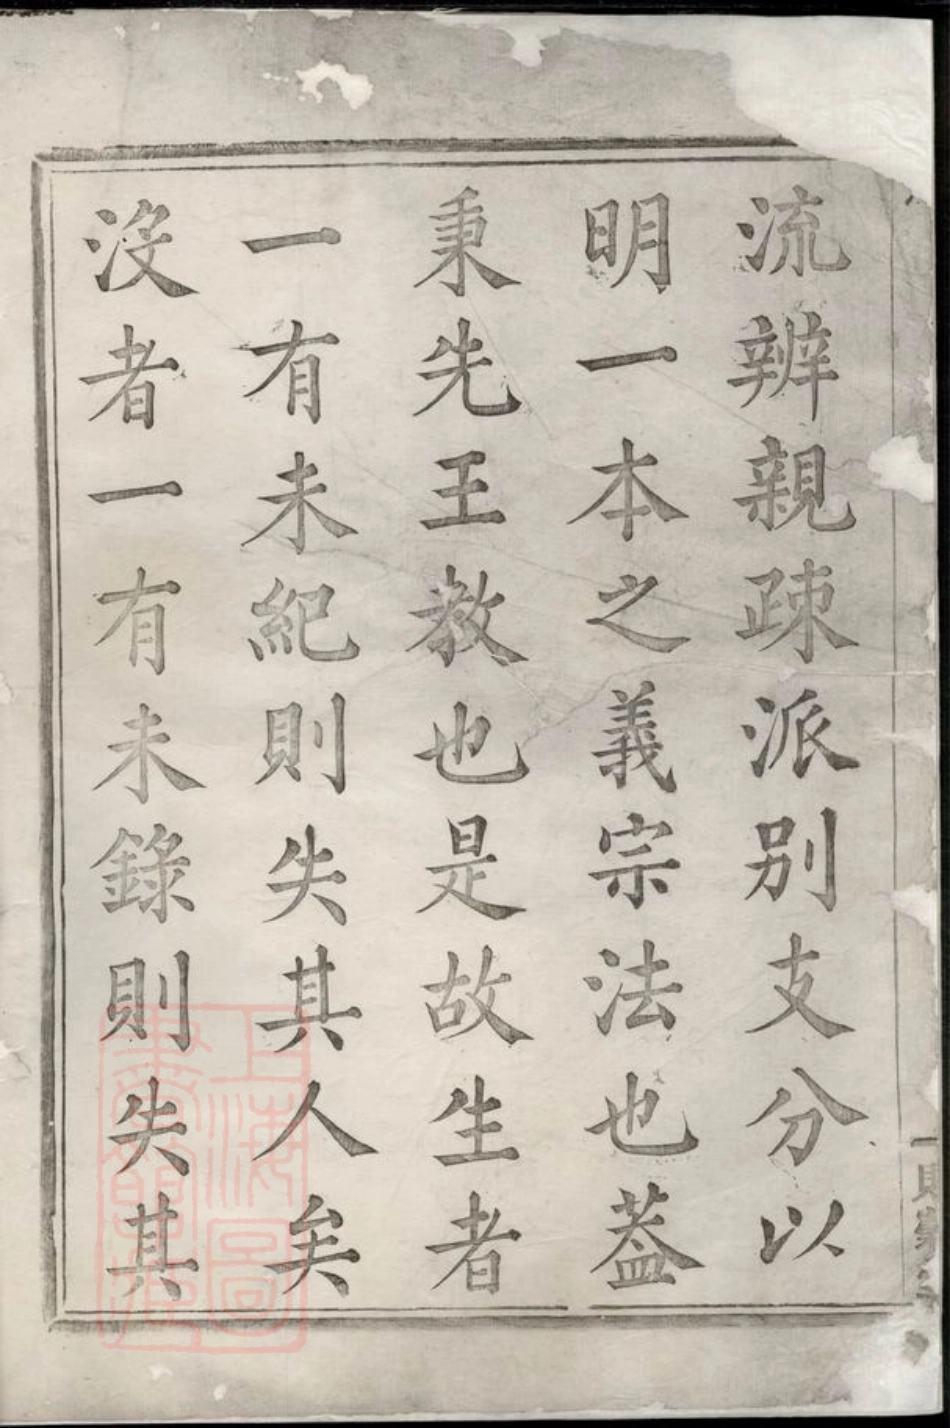 流辨親疎派别支分以
明一本之義宗法也葢
秉先王教也是故生者
一有未紀則失其人矣
沒者一有未錄則失其
上海圖書館藏